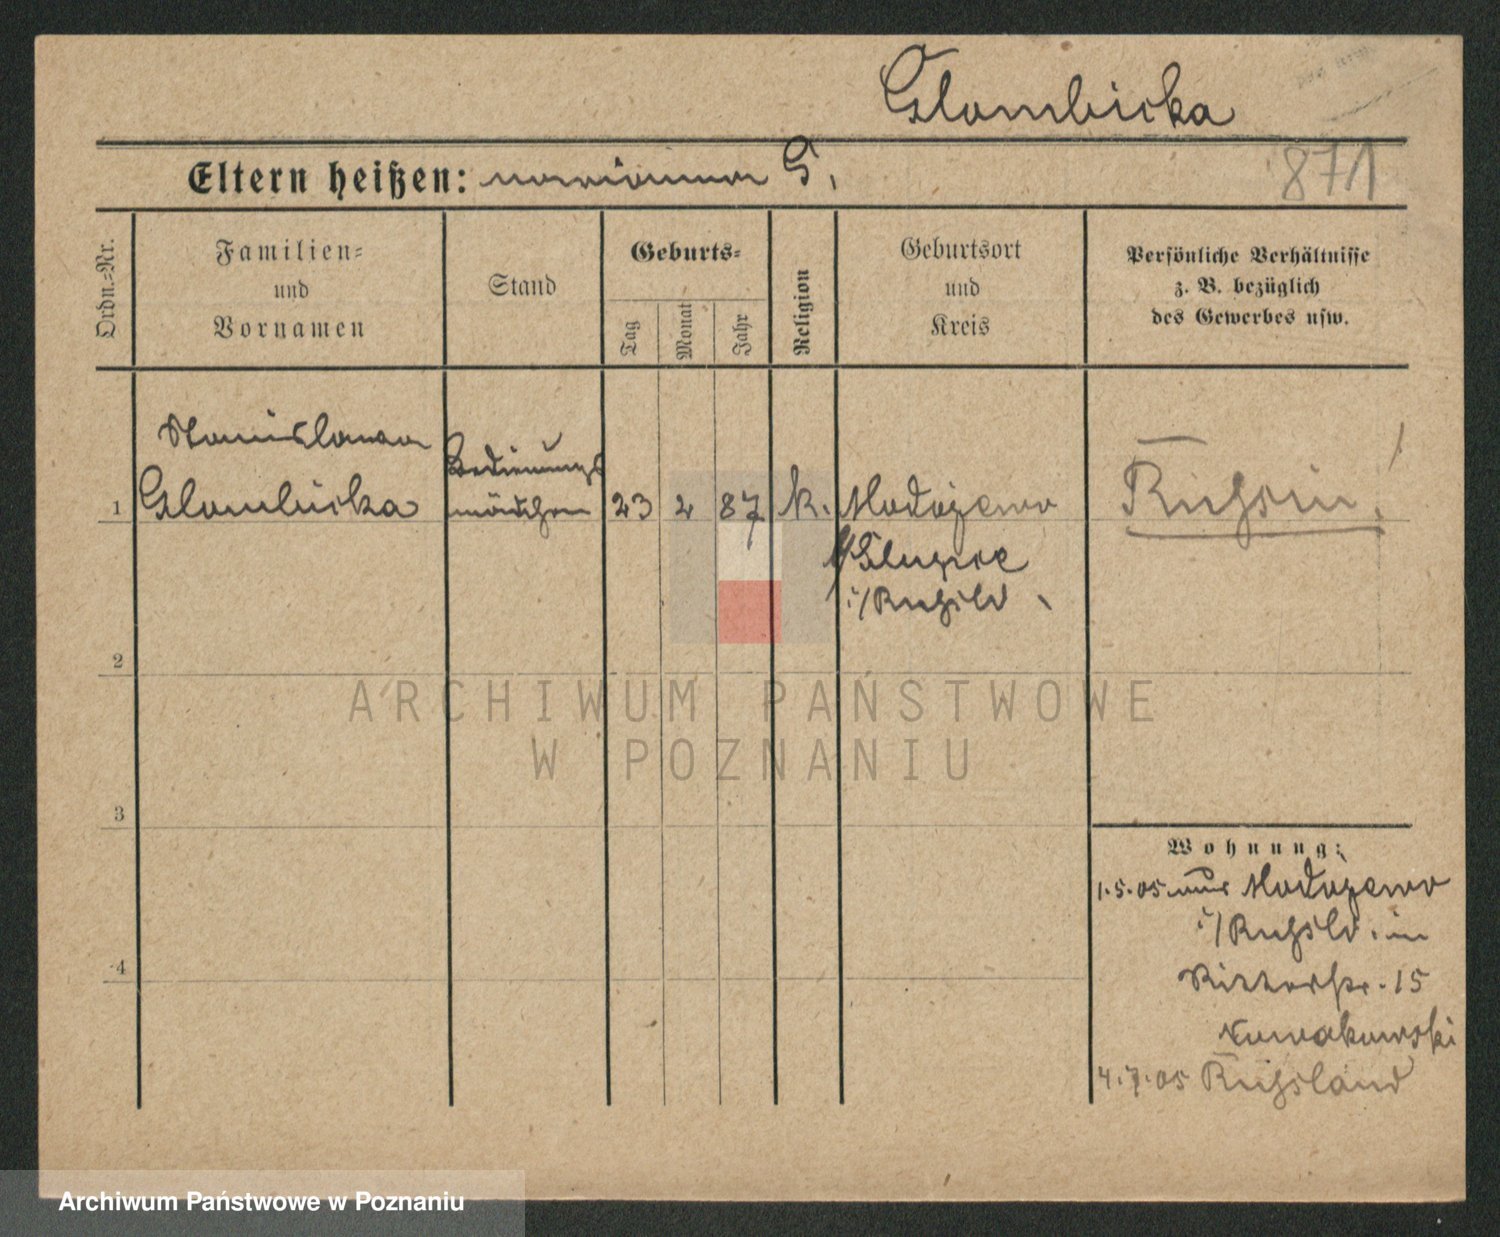 Glombicka
871
Eltern heißen: G.
Ordn.-Nr.
Familien-
und
Vornamen
Stand
Geburts-
Tag
Monat
Jahr
Religion
Geburtsort
und
Kreis
Persönliche Verhältnisse
z. B. bezüglich
des Gewerbes usw.
Stanislawa
Bedienungs
1 Glombicka mädchen 23 2 87 k. Modozewo Russin!
i/Russld
2
3
4
Wohnung:
1.5.05 aus Modozewo
i/Russld. in
Ritterstr. 15
Nowakowski
4.7.05 Russland
ARCHIWUM PAŃSTWOWE
W POZNANIU
Archiwum Państwowe w Poznaniu